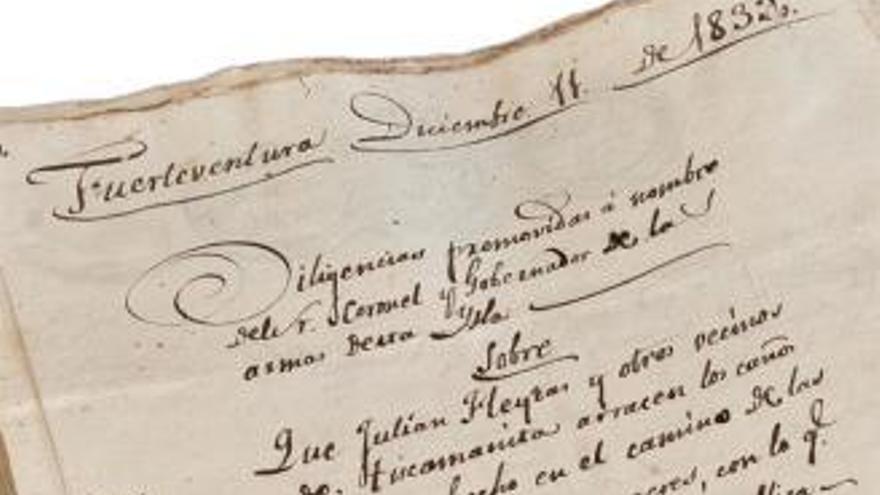 Fuerteventura Diciembre 11. de 1832.
Diligencias promovidas á nombre
del Sr. Coronel y Gobernador de las
armas de esta Ysla
Sobre
Que Julian Fleytas y otros vecinos
de Tiscamanita arracen los caños
hecho en el camino de las
con lo q.